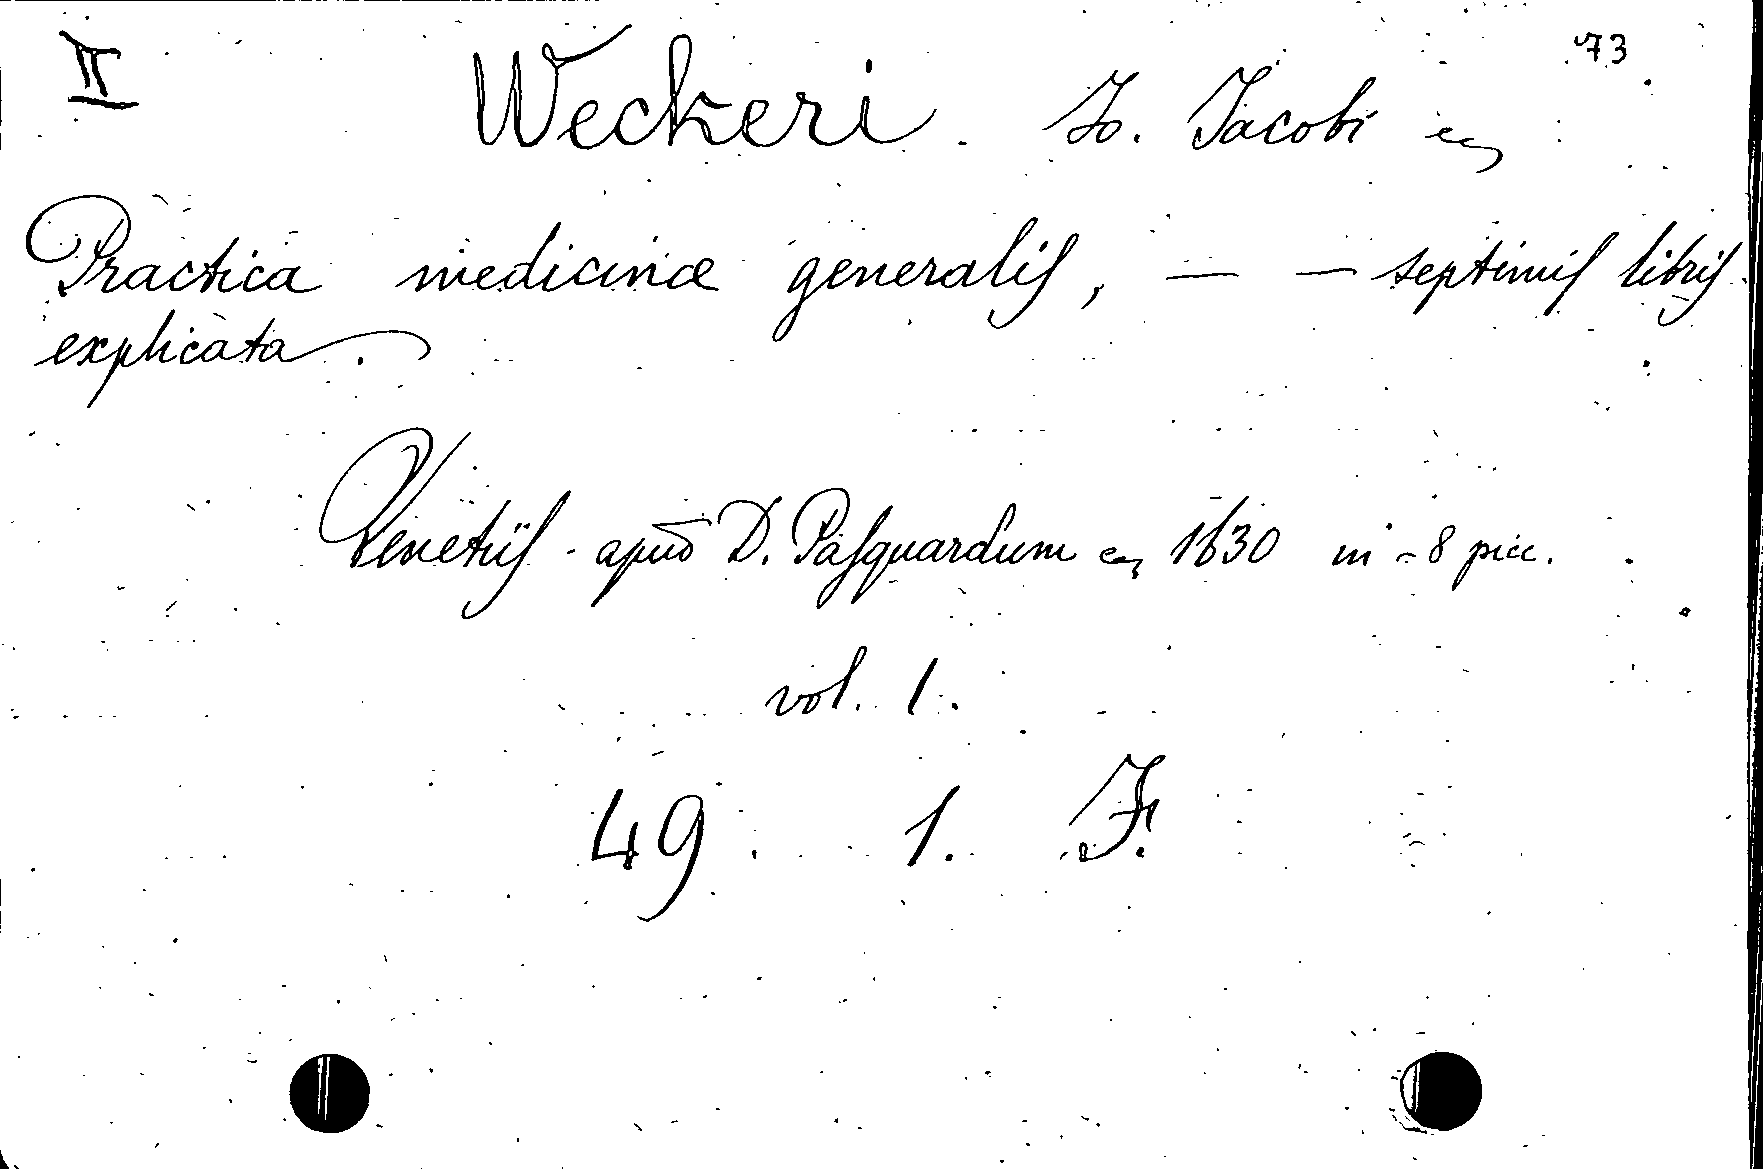 II
73
Weckeri. Jo. Jacobi
Practica medicinæ generalis, — — septimis libris
explicata.
Venetiis - apud D. Pasquardum 1630 in - 8 picc.
vol. 1.
49 1. F.